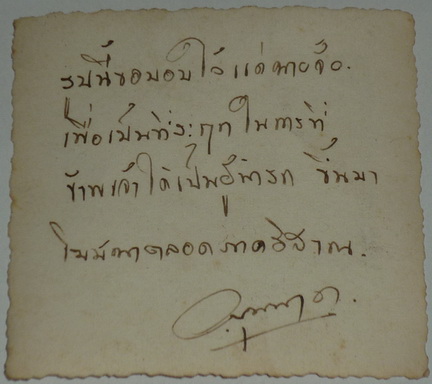 รูปนี้ขอมอบไว้แด่นาย
เพื่อเป็นที่ระฤก ในการที่
ข้าพเจ้าได้เป็นผู้นำรถ ขึ้นมา
โฆษณาตลอดภาคอิสาณ.